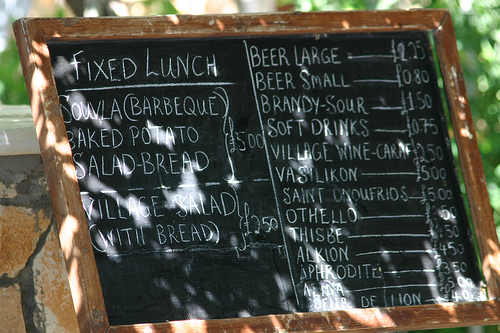 FIXED LUNCH
SOWLA (BARBEQUE)
BAKED POTATO
£5.00
SALAD-BREAD
VILLAGE SALAD
£2.50
(WITH BREAD)
BEER LARGE £1.25
BEER SMALL £0.80
BRANDY-SOUR £1.50
SOFT DRINKS £0.75
VILLAGE WINE-CARAF 2.50
VASILIKON 5.00
SAINT ONOUFRIOS £5.00
OTHELLO
THISBE
ALKION
APHRODITE
DE LION